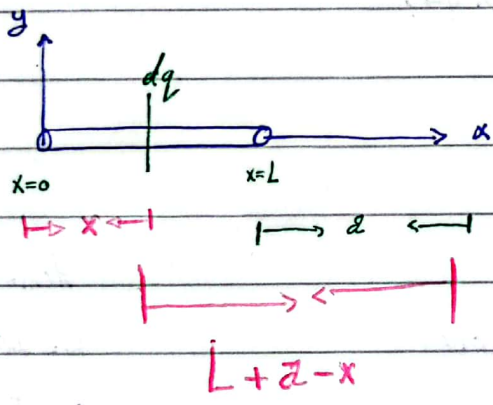 y
dq
x
x=0
x=L
x
a
L+a-x